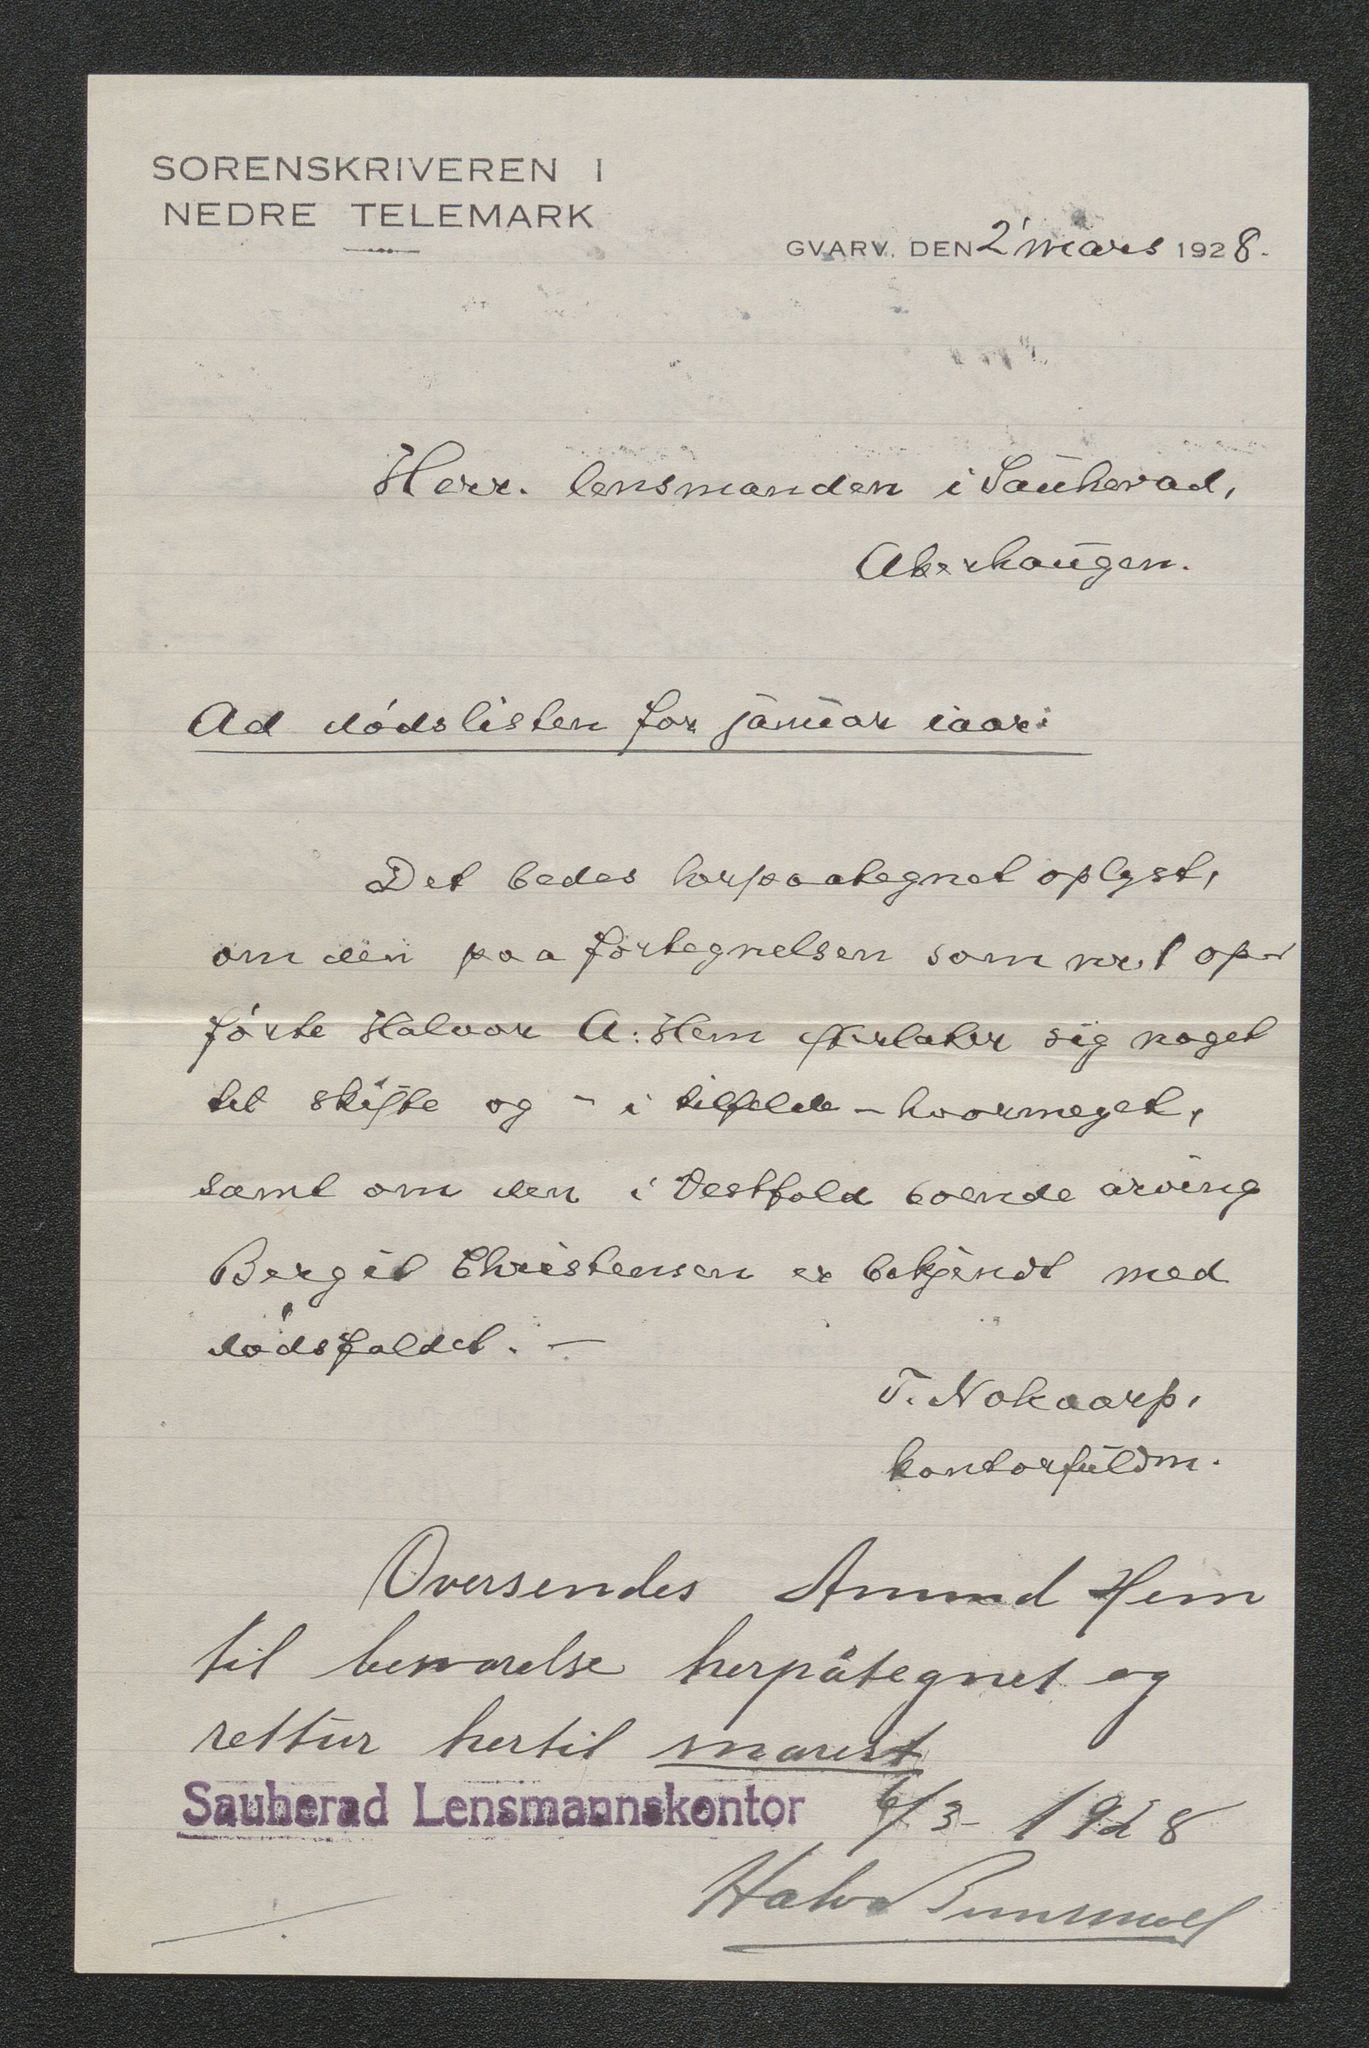 SORENSKRIVEREN I
NEDRE TELEMARK
GVARV, DEN 2' mars 1928.
Herr. lensmanden i Sauherad,
Akerhaugen.
Ad dødslisten for januar iaar:
Det bedes herpaategnet oplyst,
om den paa fortegnelsen som nr. 1 op-
førte Halvor A. Hem efterlater sig noget
til skifte og - i tilfelde - hvormeget,
samt om den i Vestfold boende arving
Bergit Christensen er bekjendt med
dødsfaldet. -
T. Nokaarp,
kontorfuldm.
Oversendes Amund Hem
til besvarelse herpåtegnet og
rettur hertil snarest
Sauherad Lensmannskontor 6/3 - 1928
Halvor